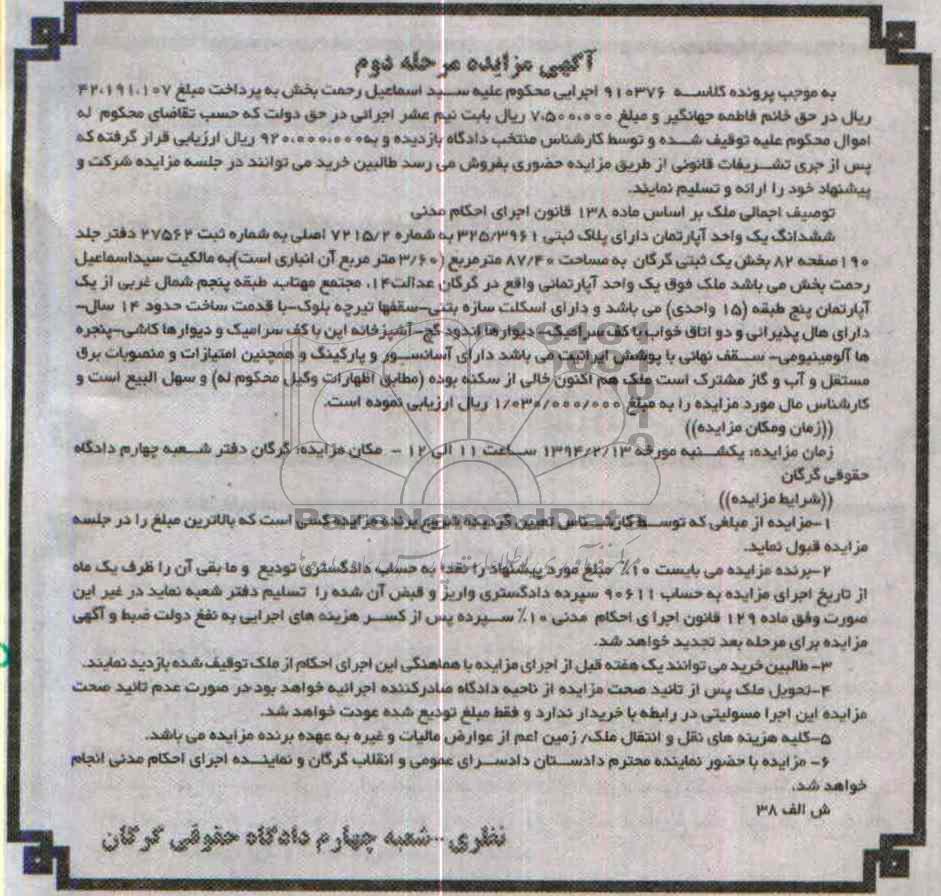 آگهی مزایده مرحله دوم
به موجب پرونده کلاسه ۹۱۰۳۷۶ اجرایی محکوم علیه سید اسماعیل رحمت بخش به پرداخت مبلغ ۴۲،۱۹۱،۱۰۷
ریال در حق خانم فاطمه جهانگیر و مبلغ ۷،۵۰۰،۰۰۰ ریال بابت نیم عشر اجرائی در حق دولت که حسب تقاضای محکوم له
اموال محکوم علیه توقیف شده و توسط کارشناس منتخب دادگاه بازدیده و به ۹۲۰،۰۰۰،۰۰۰ ریال ارزیابی قرار گرفته که
پس از جری تشریفات قانونی از طریق مزایده حضوری بفروش می رسد طالبین خرید می توانند در جلسه مزایده شرکت و
پیشنهاد خود را ارائه و تسلیم نمایند.
توصیف اجمالی ملک بر اساس ماده ۱۳۸ قانون اجرای احکام مدنی
ششدانگ یک واحد آپارتمان دارای پلاک ثبتی ۳۲۵/۳۹۶۱ به شماره ۷۲۱۵/۲ اصلی به شماره ثبت ۲۷۵۶۲ دفتر جلد
۱۹۰ صفحه ۸۲ بخش یک ثبتی گرگان به مساحت ۸۷/۴۰ مترمربع (۳/۶۰ متر مربع آن انباری است)به مالکیت سیداسماعیل
رحمت بخش می باشد ملک فوق یک واحد آپارتمانی واقع در گرگان عدالت۱۴، مجتمع مهتاب، طبقه پنجم شمال غربی از یک
آپارتمان پنج طبقه (۱۵ واحدی) می باشد و دارای اسکلت سازه بتنی-سقفها تیرچه بلوک-با قدمت ساخت حدود ۱۴ سال-
دارای هال پذیرائی و دو اتاق خواب با کف سرامیک- دیوارها اندود گچ-آشپزخانه اپن با کف سرامیک و دیوارها کاشی-پنجره
ها آلومینیومی- سقف نهائی با پوشش ایرانیت می باشد دارای آسانسور و پارکینگ و همچنین امتیازات و منصوبات برق
مستقل و آب و گاز مشترک است ملک هم اکنون خالی از سکنه بوده (مطابق اظهارات وکیل محکوم له) و سهل البیع است و
کارشناس مال مورد مزایده را به مبلغ ۱/۰۳۰/۰۰۰/۰۰۰ ریال ارزیابی نموده است.
((زمان ومکان مزایده))
زمان مزایده: یکشنبه مورخه ۱۳۹۴/۲/۱۳ ساعت ۱۱ الی ۱۲ - مکان مزایده: گرگان دفتر شعبه چهارم دادگاه
حقوقی گرگان
((شرایط مزایده))
۱-مزایده از مبلغی که توسط کارشناس تعیین گردیده شروع برنده مزایده کسی است که بالاترین مبلغ را در جلسه
مزایده قبول نماید.
۲-برنده مزایده می بایست ۱۰٪ مبلغ مورد پیشنهاد را نقدا به حساب دادگستری تودیع و ما بقی آن را ظرف یک ماه
از تاریخ اجرای مزایده به حساب ۹۰۶۱۱ سپرده دادگستری واریز و قبض آن شده را تسلیم دفتر شعبه نماید در غیر این
صورت وفق ماده ۱۲۹ قانون اجرا ی احکام مدنی ۱۰٪ سپرده پس از کسر هزینه های اجرایی به نفغ دولت ضبط و آگهی
مزایده برای مرحله بعد تجدید خواهد شد.
۳- طالبین خرید می توانند یک هفته قبل از اجرای مزایده با هماهنگی این اجرای احکام از ملک توقیف شده بازدید نمایند.
۴-تحویل ملک پس از تائید صحت مزایده از ناحیه دادگاه صادرکننده اجرائیه خواهد بود در صورت عدم تائید صحت
مزایده این اجرا مسولیتی در رابطه با خریدار ندارد و فقط مبلغ تودیع شده عودت خواهد شد.
۵-کلیه هزینه های نقل و انتقال ملک/ زمین اعم از عوارض مالیات و غیره به عهده برنده مزایده می باشد.
۶- مزایده با حضور نماینده محترم دادستان دادسرای عمومی و انقلاب گرگان و نماینده اجرای احکام مدنی انجام
خواهد شد.
ش الف ۳۸
نظری-شعبه چهارم دادگاه حقوقی گرگان
ParsNamadData